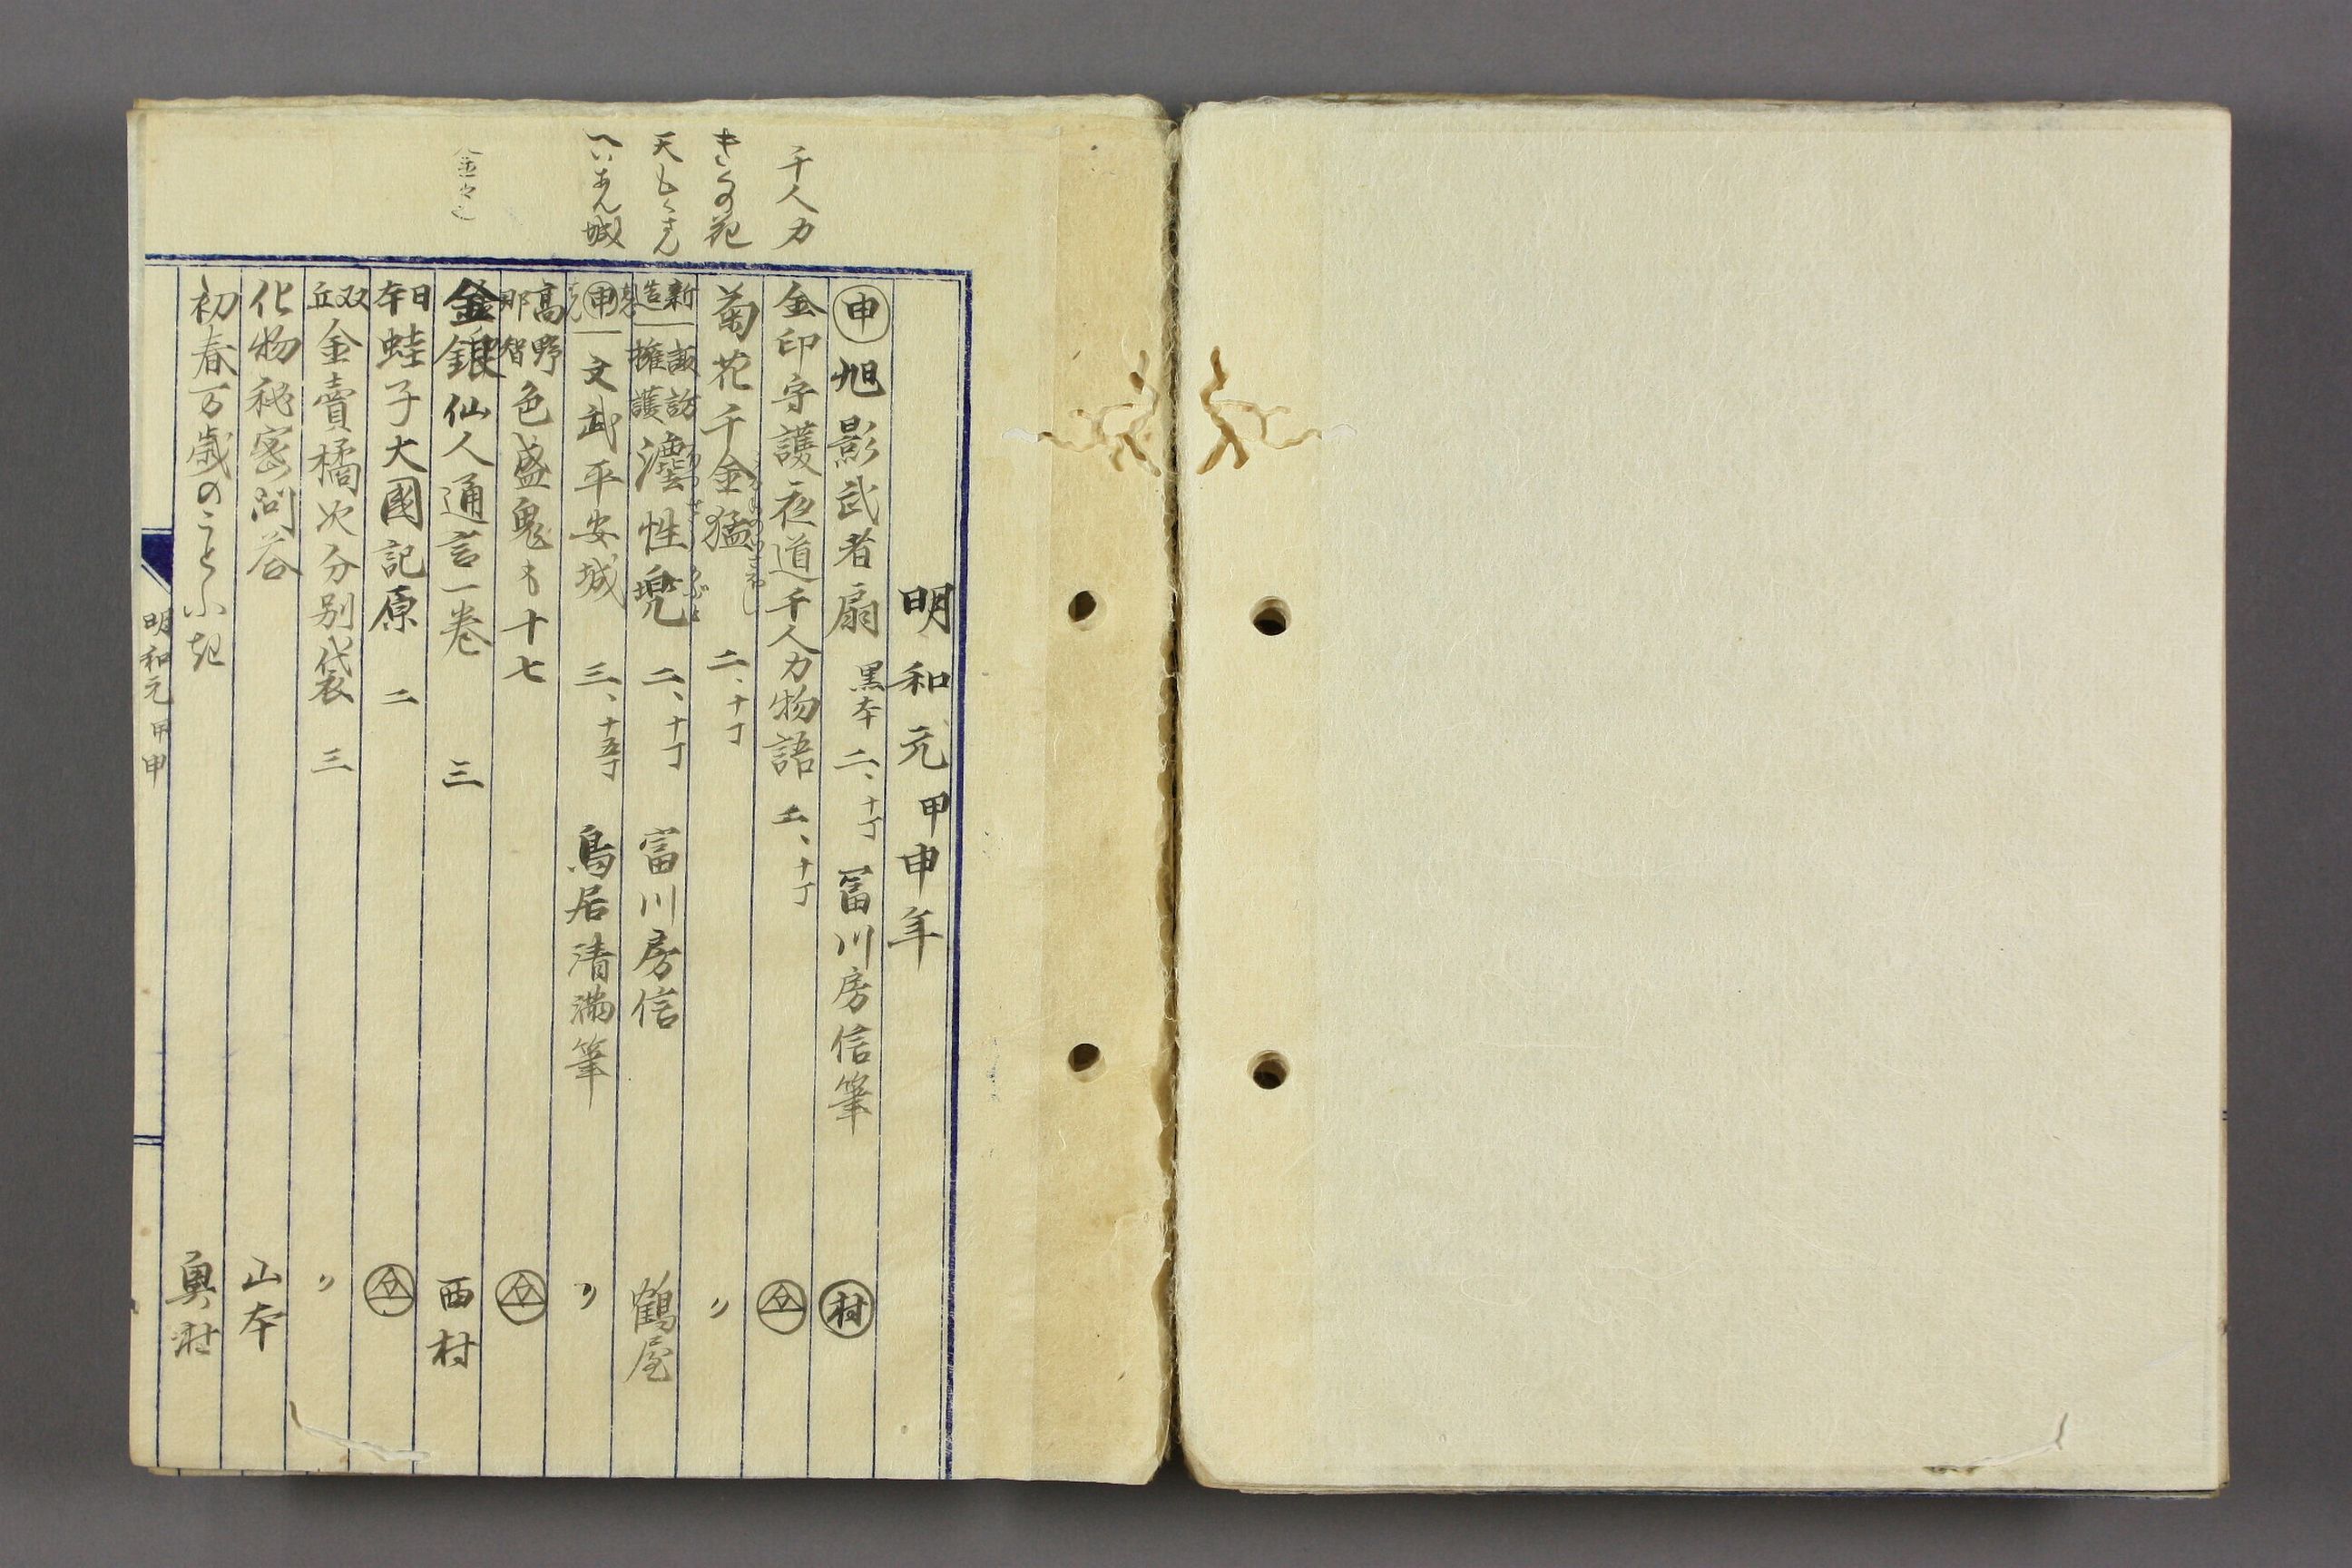 明和元甲申年
千人力
きくの花
天もくさん
へいあん城
申 旭影武者扇 黒本 二、十丁 冨川房信筆 村
金印守護夜道千人力物語 二、十丁
菊花千金猛 二、十丁 〃
新造 諏訪擁護 性兜 二、十丁 富川房信 鶴屋
申 文武平安城 三、十五丁 鳥居清満筆 〃
高野那智 色盛鬼も十七
金銀仙人通言一巻 三 西村
日本 蛙子大國記原 二
双丘 金賣橘次分別袋 三 〃
化物秘密問答 山本
初春万歳のことふき 奥村
明和元甲申